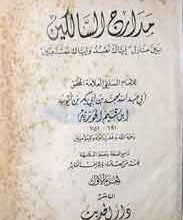 مدارج السالكين
بين منازل إياك نعبد وإياك نستعين
للإمام السلفي العلامة المحقق
أبي عبد الله محمد بن أبي بكر بن أيوب
ابن قيم الجوزية
٦٩١ - ٧٥١
الجزء الأول
الناشر
دار الحديث